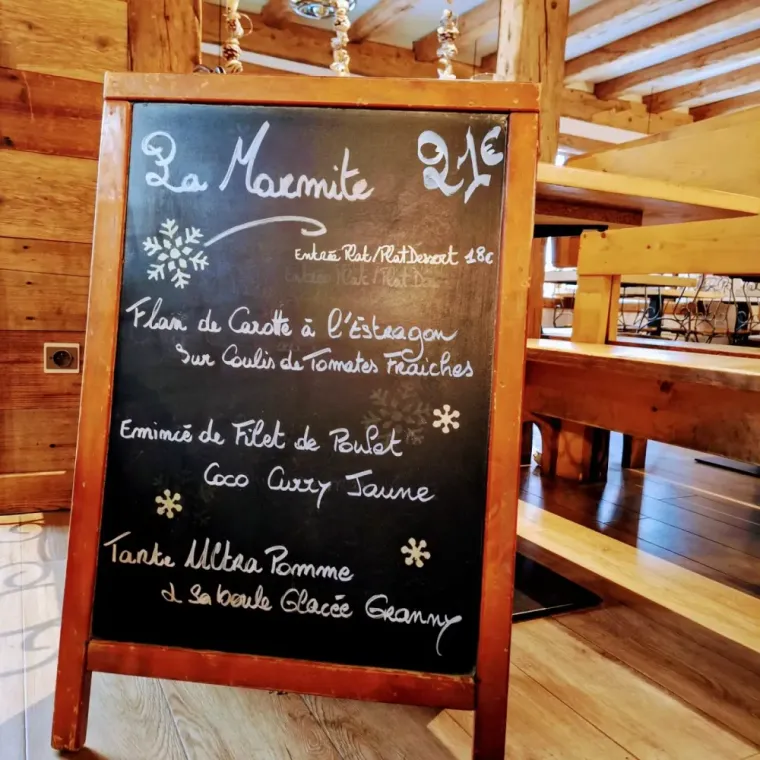 La Marmite 21€
Entrée Plat/Plat Dessert 18€
Flan de Carotte à l'Estragon
Sur Coulis de Tomates Fraiches
Emincé de Filet de Poulet
Coco Curry Jaune
Tarte Ultra Pomme
& sa boule Glacée Granny